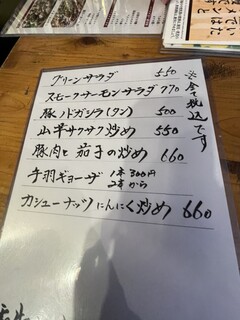 グリーンサラダ 550
スモークサーモンサラダ 770
豚ノドガシラ(タン) 500
山芋サクサク炒め 550
豚肉と茄子の炒め 660
手羽ギョーザ 1本300円
2本から
カシューナッツにんにく炒め 660
※全て税込です